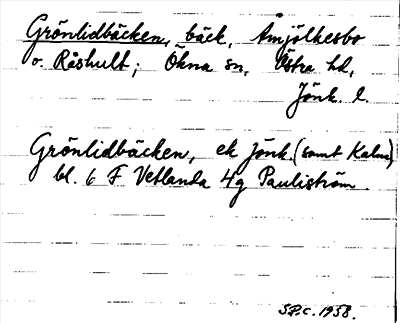 Grönlidbäcken, bäck, Åmjölkesbo
o. Råshult; Ökna sn, Östra hd,
Jönk. l.
Grönlidbäcken, ek Jönk. (samt Kalm)
bl. 6 F Vetlanda 4g Pauliström.
S.P.C. 1958.